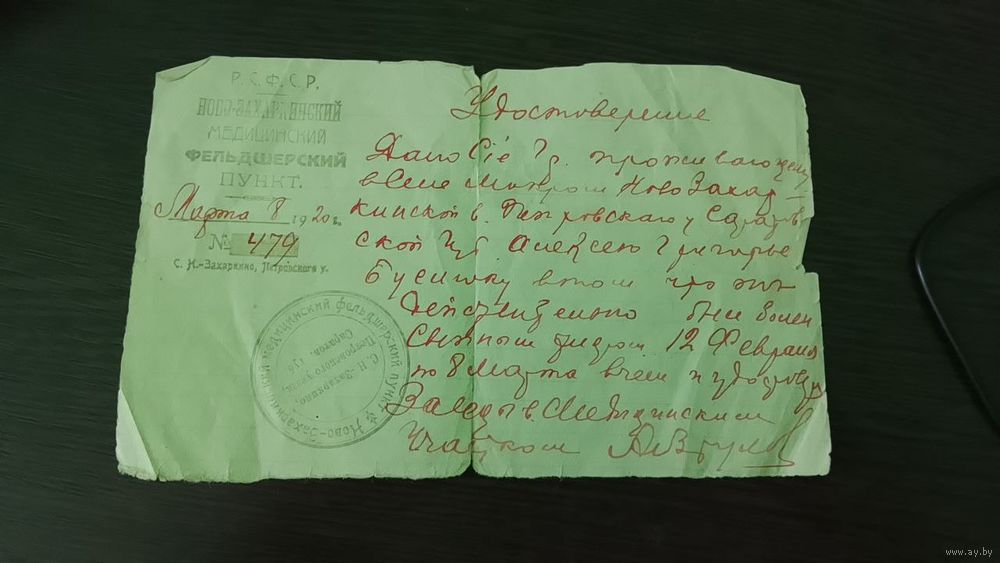 Р.С.Ф.С.Р.
НОВО-ЗАХАРКИНСКИЙ
МЕДИЦИНСКИЙ
ФЕЛЬДШЕРСКИЙ
ПУНКТ.
Марта 8 1920 г.
№ 479
С. Н.-Захаркино, Петровского у.
Удостоверение
Дано Сіе Гр. проживающему
в Селе Ново Захар-
кинской в. Петровскаго у Саратов
ской Губ. Алексею Григорье
в том что он
действительно был болен
Сыпным тифом 12 Февраля
по 8 Марта в чем и удостоверяю
Заведыв. Медицинским
Участком
Ново-Захаркинский медицинский фельдшерский пункт
С. Н.-Захаркино,
Петровского уезда,
Саратов. губ.
www.ay.by